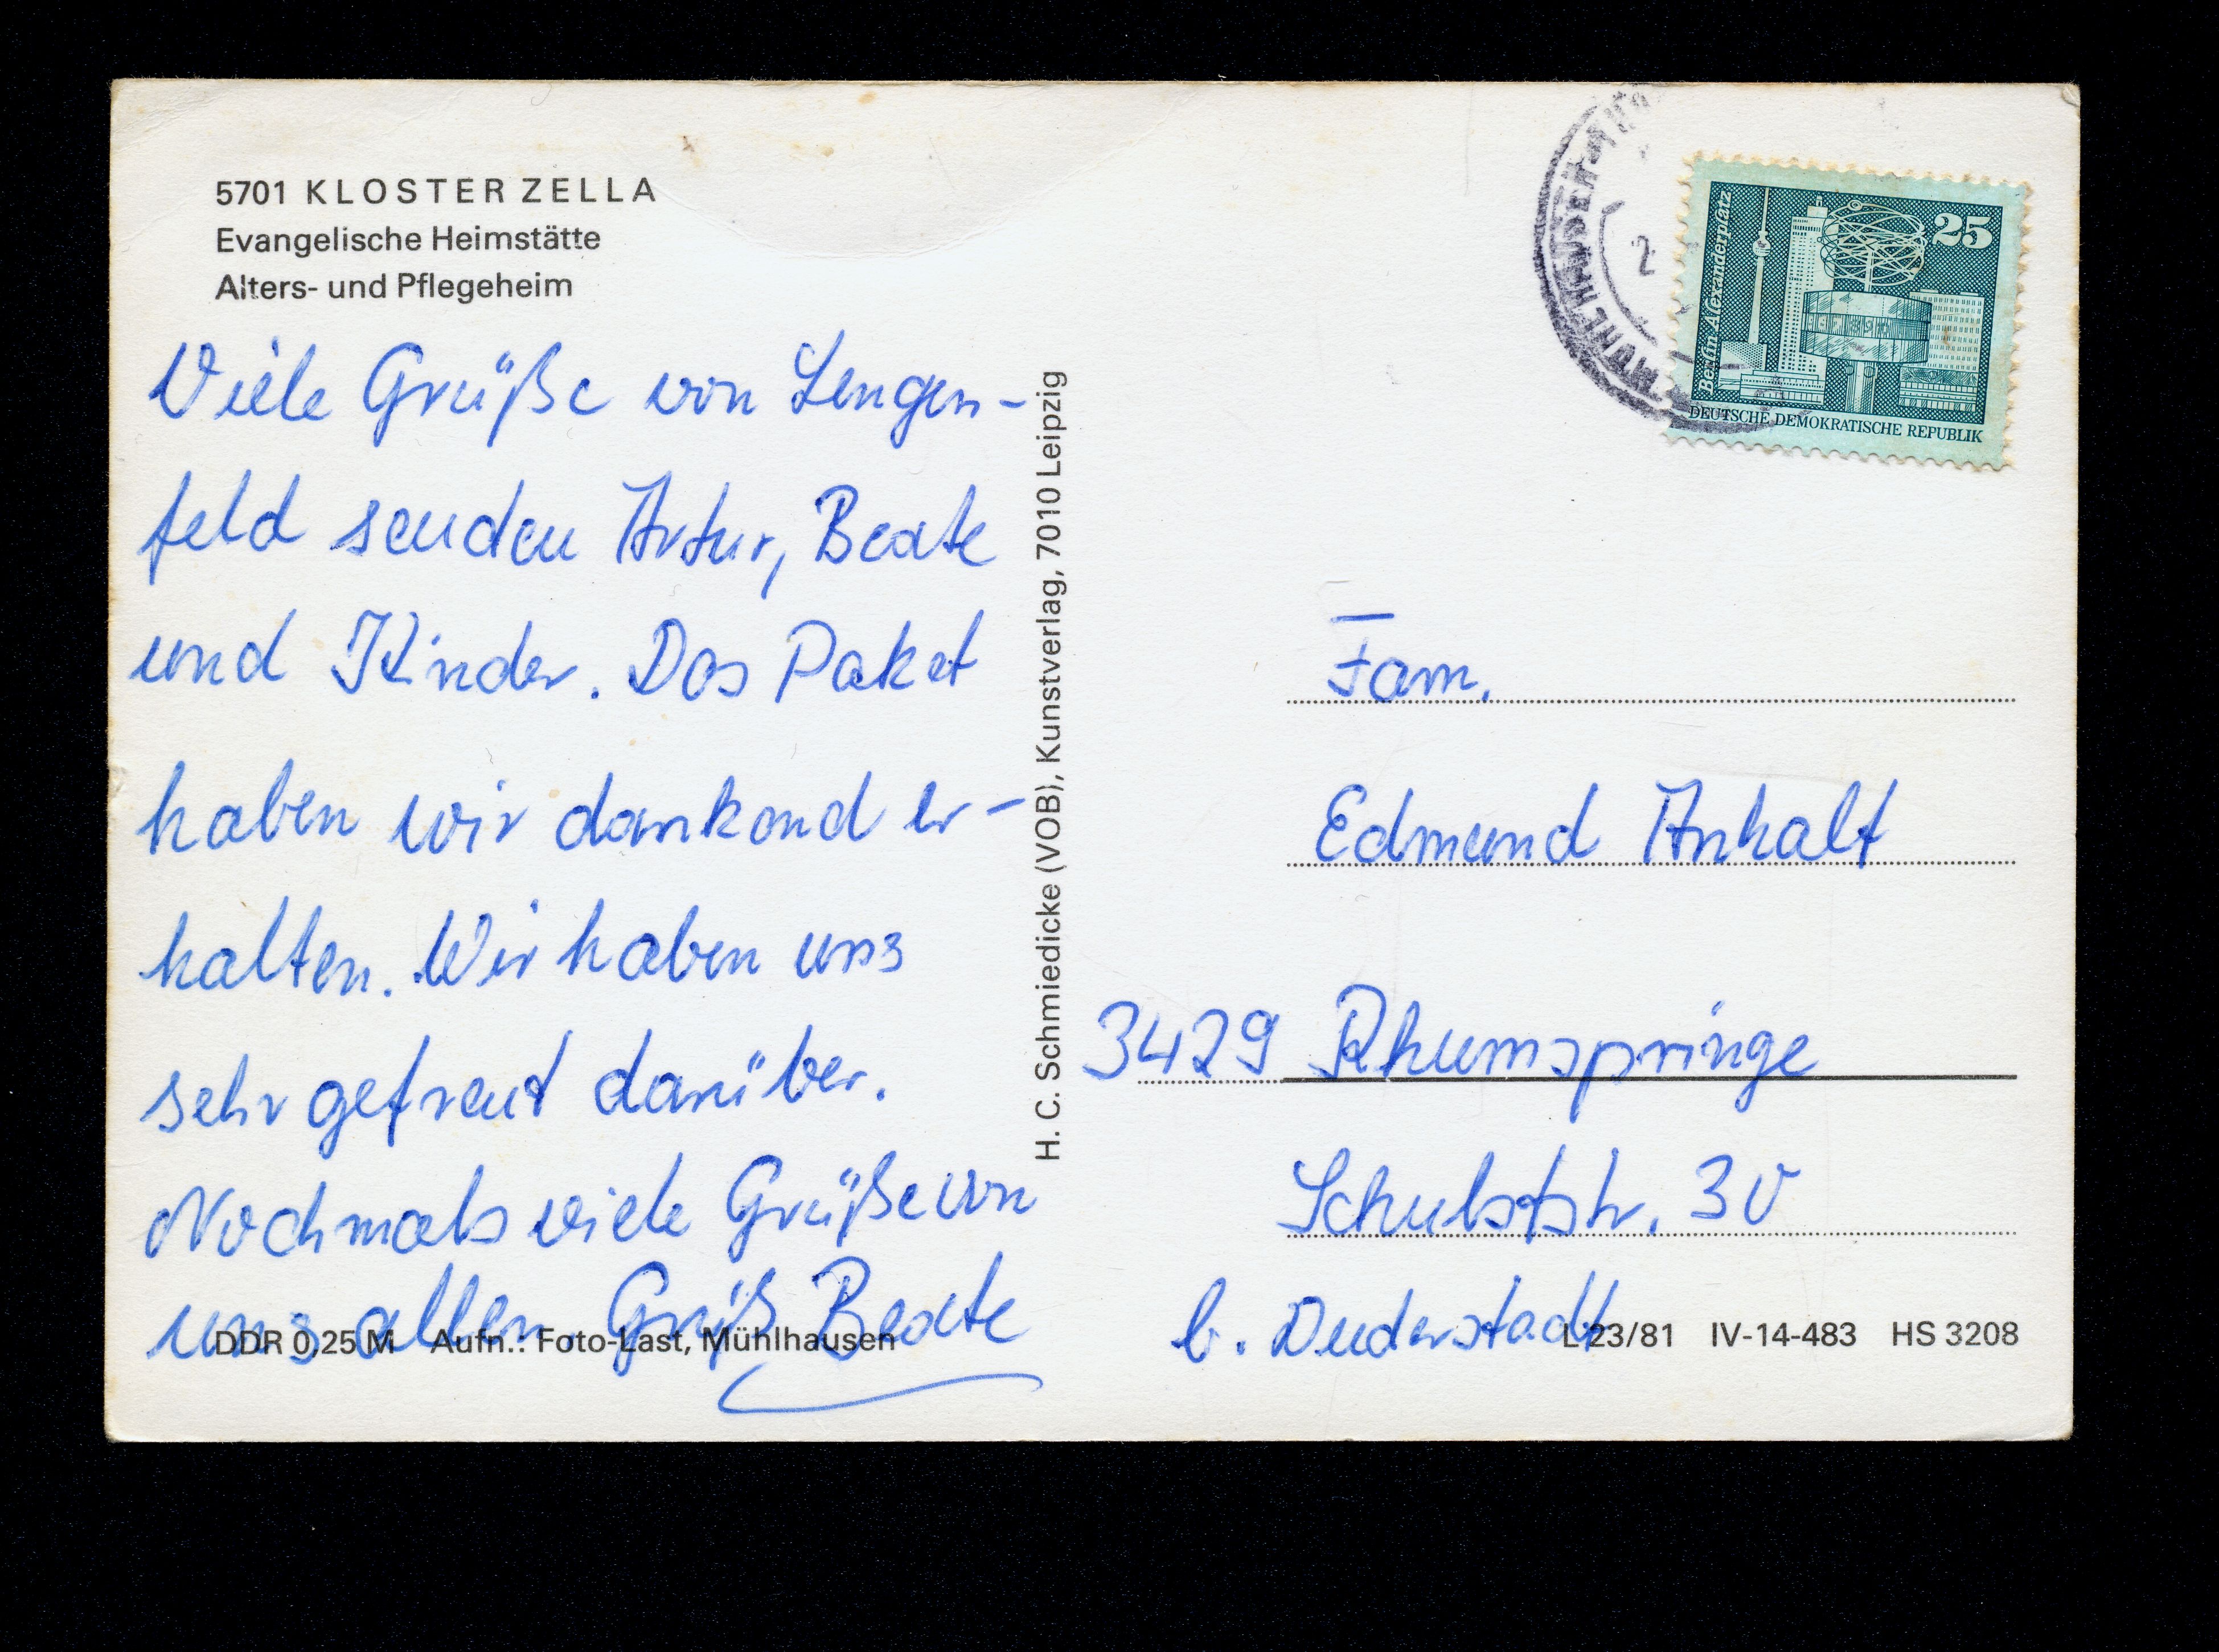 5701 KLOSTER ZELLA
Evangelische Heimstätte
Alters- und Pflegeheim
Viele Grüße von Lengen-
feld senden Artur, Beate
und Kinder. Das Paket
haben wir dankend er-
halten. Wir haben uns
sehr gefreut darüber.
Nochmals viele Grüße von
uns allen. Gruß Beate
DDR 0,25 M Aufn.: Foto-Last, Mühlhausen
H. C. Schmiedicke (VOB), Kunstverlag, 7010 Leipzig
MÜHLHAUSEN
2
Berlin Alexanderplatz
25
DEUTSCHE DEMOKRATISCHE REPUBLIK
Fam.
Edmund Anhalt
3429 Rhumspringe
Schulststr. 30
b. Duderstadt
L 23/81 IV-14-483 HS 3208